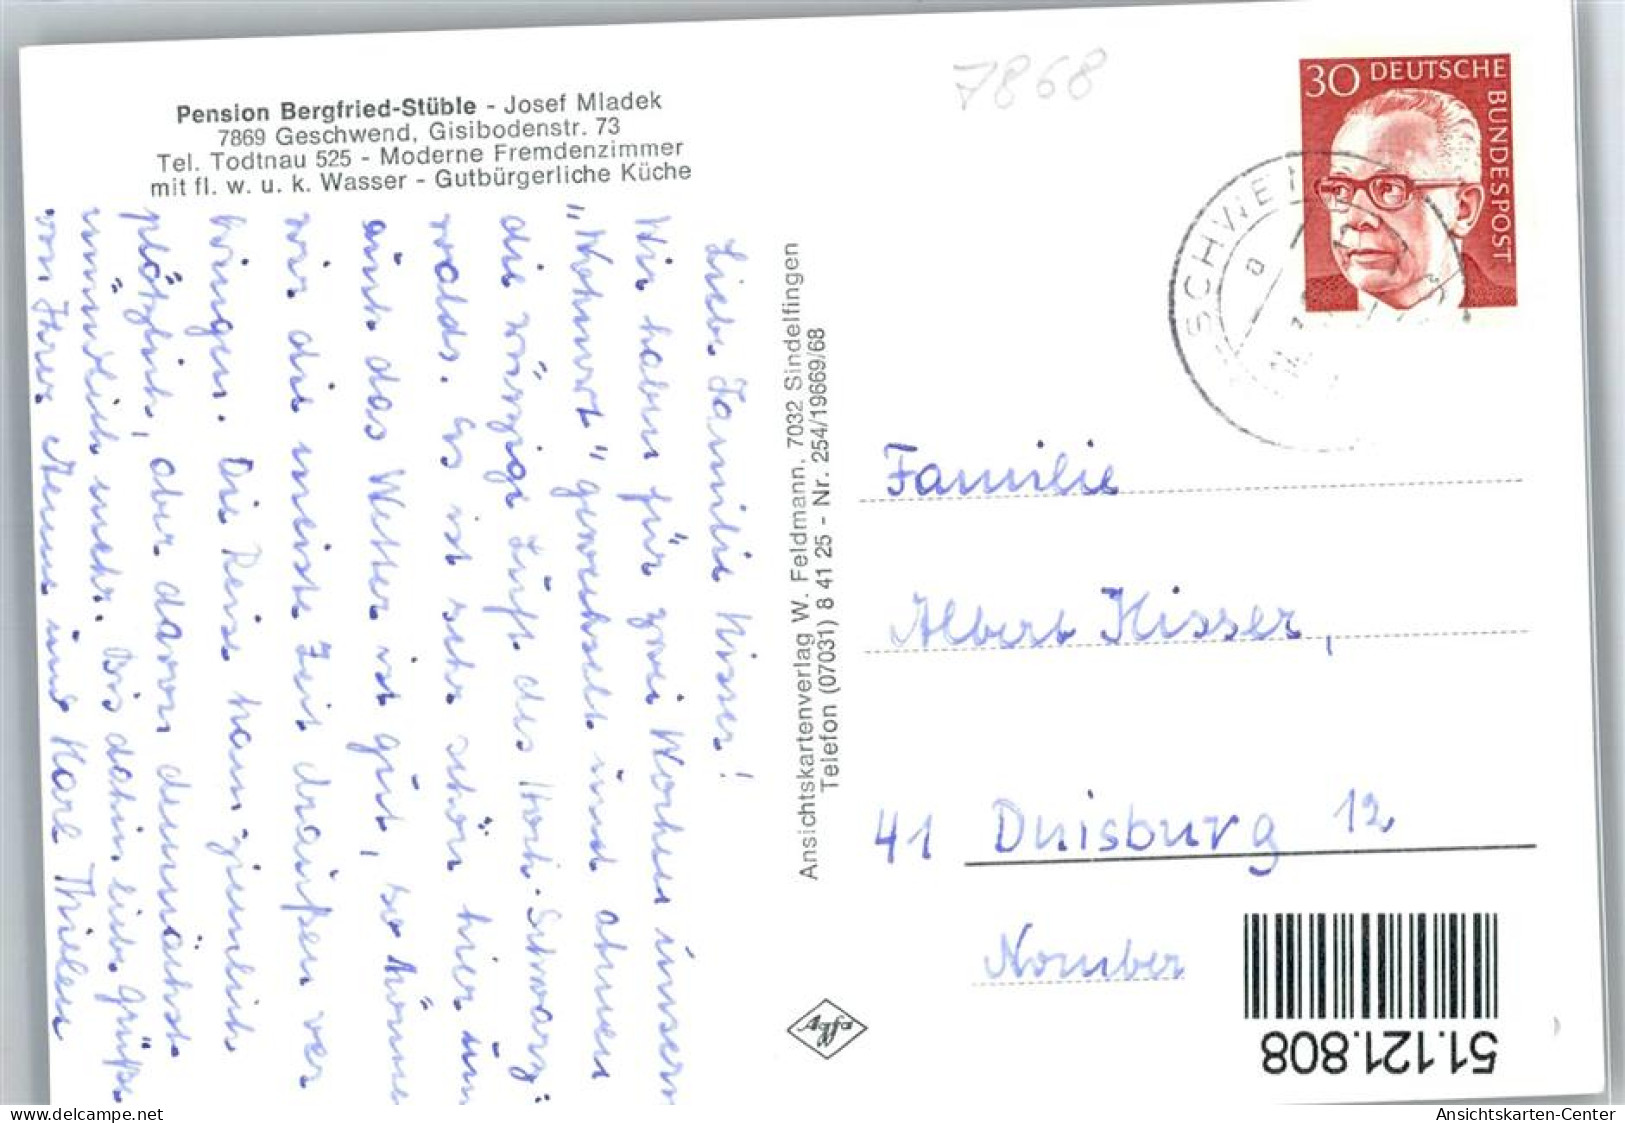 Pension Bergfried-Stüble - Josef Mladek
7869 Geschwend, Gisibodenstr. 73
Tel. Todtnau 525 - Moderne Fremdenzimmer
mit fl. w. u. k. Wasser - Gutbürgerliche Küche
7868
30 DEUTSCHE
BUNDESPOST
SCHWE
a
Liebe Familie Kisser!
Wir haben für zwei Wochen unsern
"Wohnort" gewechselt und atmen
die würzige Luft des Hoch-Schwarz-
walds. Es ist sehr schön hier und
auch das Wetter ist gut, so können
wir die meiste Zeit draußen ver
bringen. Die Reise kam ziemlich
plötzlich, aber davon demnächst
mündlich mehr. Bis dahin liebe Grüße
von Ihrer und Karl Thielen
Ansichtskartenverlag W. Feldmann, 7032 Sindelfingen
Telefon (07031) 8 41 25 - Nr. 254/19669/68
Familie
Albert Kisser,
41 Duisburg 12
Agfa
51.121.808
oldthing.de
Ansichtskarten-Center